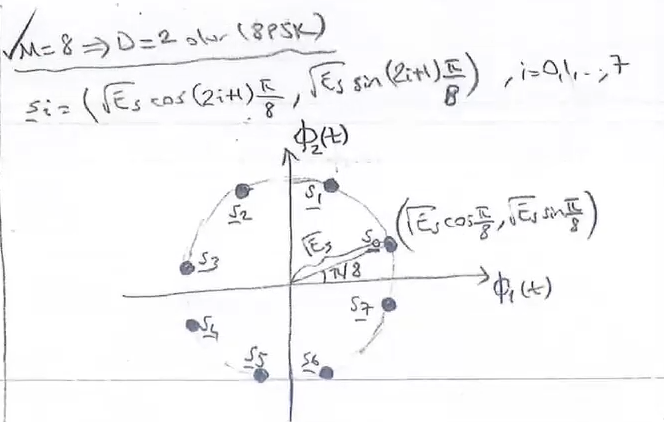 √M=8 ⇒ D=2 olur (8PSK)
s̲i = (√Es cos(2i+1)π/8, √Es sin(2i+1)π/8) , i=0,1,..,7
ϕ2(t)
s̲2
s̲1
(√Es cos π/8, √Es sin π/8)
√Es
s̲0
s̲3
π/8
ϕ1(t)
s̲7
s̲4
s̲5
s̲6